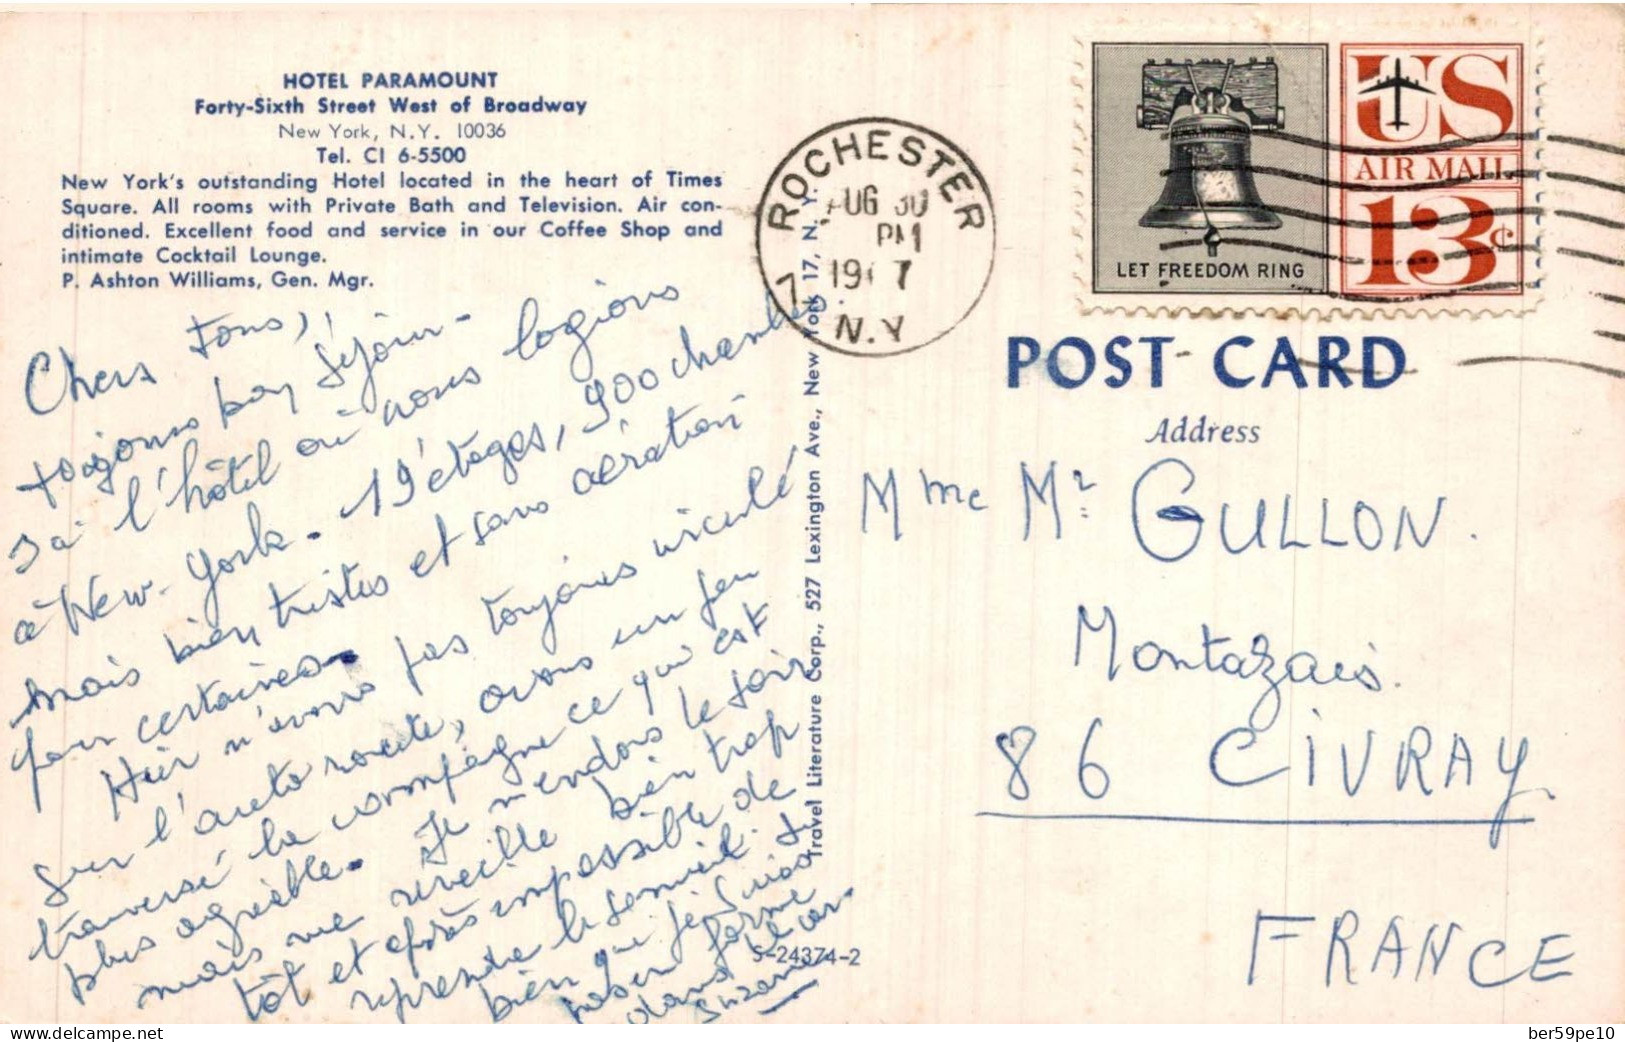 HOTEL PARAMOUNT
Forty-Sixth Street West of Broadway
New York, N.Y. 10036
Tel. CI 6-5500
New York's outstanding Hotel located in the heart of Times
Square. All rooms with Private Bath and Television. Air con-
ditioned. Excellent food and service in our Coffee Shop and
intimate Cocktail Lounge.
P. Ashton Williams, Gen. Mgr.
Chers tous,
toujours
à l'hôtel où nous logions
à New-York. 19 étages, 900 chambres
mais bien tristes et sans aération
pour certaines.
Hier n'avons pas toujours circulé
sur l'autoroute, avons un peu
traversé la campagne ce qui est
plus agréable. Je m'endors le soir
mais me réveille bien trop
tôt et après impossible de
reprendre le sommeil. Si
bien que je suis
pas en forme
dans le car.
Suzanne
Travel Literature Corp., 527 Lexington Ave., New York 17, N.Y.
S-24374-2
ROCHESTER
AUG 30
PM
1967
N.Y
7
LET FREEDOM RING
US
AIR MAIL
13c
POST CARD
Address
Mme Mr GULLON.
Montazais.
86 CIVRAY
FRANCE
delcampe.net
ber59pe10